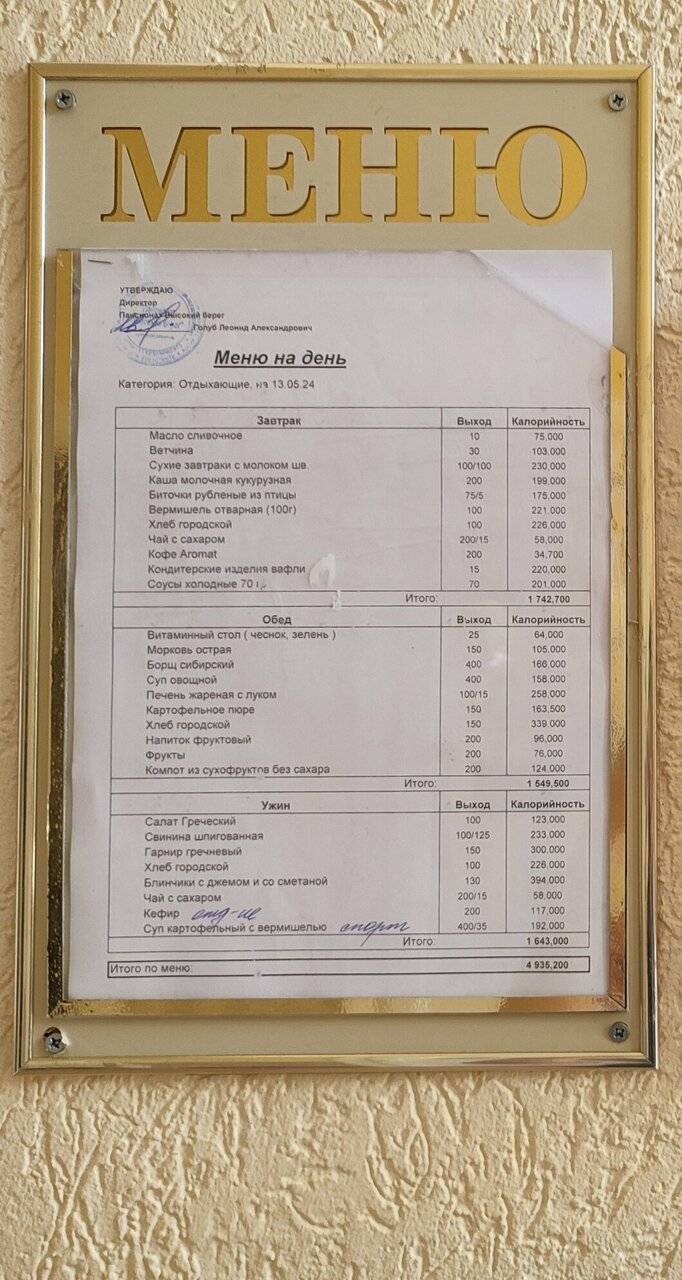 МЕНЮ
УТВЕРЖДАЮ
Директор
Пансионат Высокий берег
Голуб Леонид Александрович
Меню на день
Категория: Отдыхающие, на 13.05.24
Завтрак Выход Калорийность
Масло сливочное 10 75,000
Ветчина 30 103,000
Сухие завтраки с молоком шв. 100/100 230,000
Каша молочная кукурузная 200 199,000
Биточки рубленые из птицы 75/5 175,000
Вермишель отварная (100г) 100 221,000
Хлеб городской 100 226,000
Чай с сахаром 200/15 58,000
Кофе Aromat 200 34,700
Кондитерские изделия вафли 15 220,000
Соусы холодные 70 г. 70 201,000
Итого: 1 742,700
Обед Выход Калорийность
Витаминный стол ( чеснок, зелень ) 25 64,000
Морковь острая 150 105,000
Борщ сибирский 400 166,000
Суп овощной 400 158,000
Печень жареная с луком 100/15 258,000
Картофельное пюре 150 163,500
Хлеб городской 150 339,000
Напиток фруктовый 200 96,000
Фрукты 200 76,000
Компот из сухофруктов без сахара 200 124,000
Итого: 1 549,500
Ужин Выход Калорийность
Салат Греческий 100 123,000
Свинина шпигованная 100/125 233,000
Гарнир гречневый 150 300,000
Хлеб городской 100 226,000
Блинчики с джемом и со сметаной 130 394,000
Чай с сахаром 200/15 58,000
Кефир 200 117,000
Суп картофельный с вермишелью спорт 400/35 192,000
Итого: 1 643,000
Итого по меню: 4 935,200